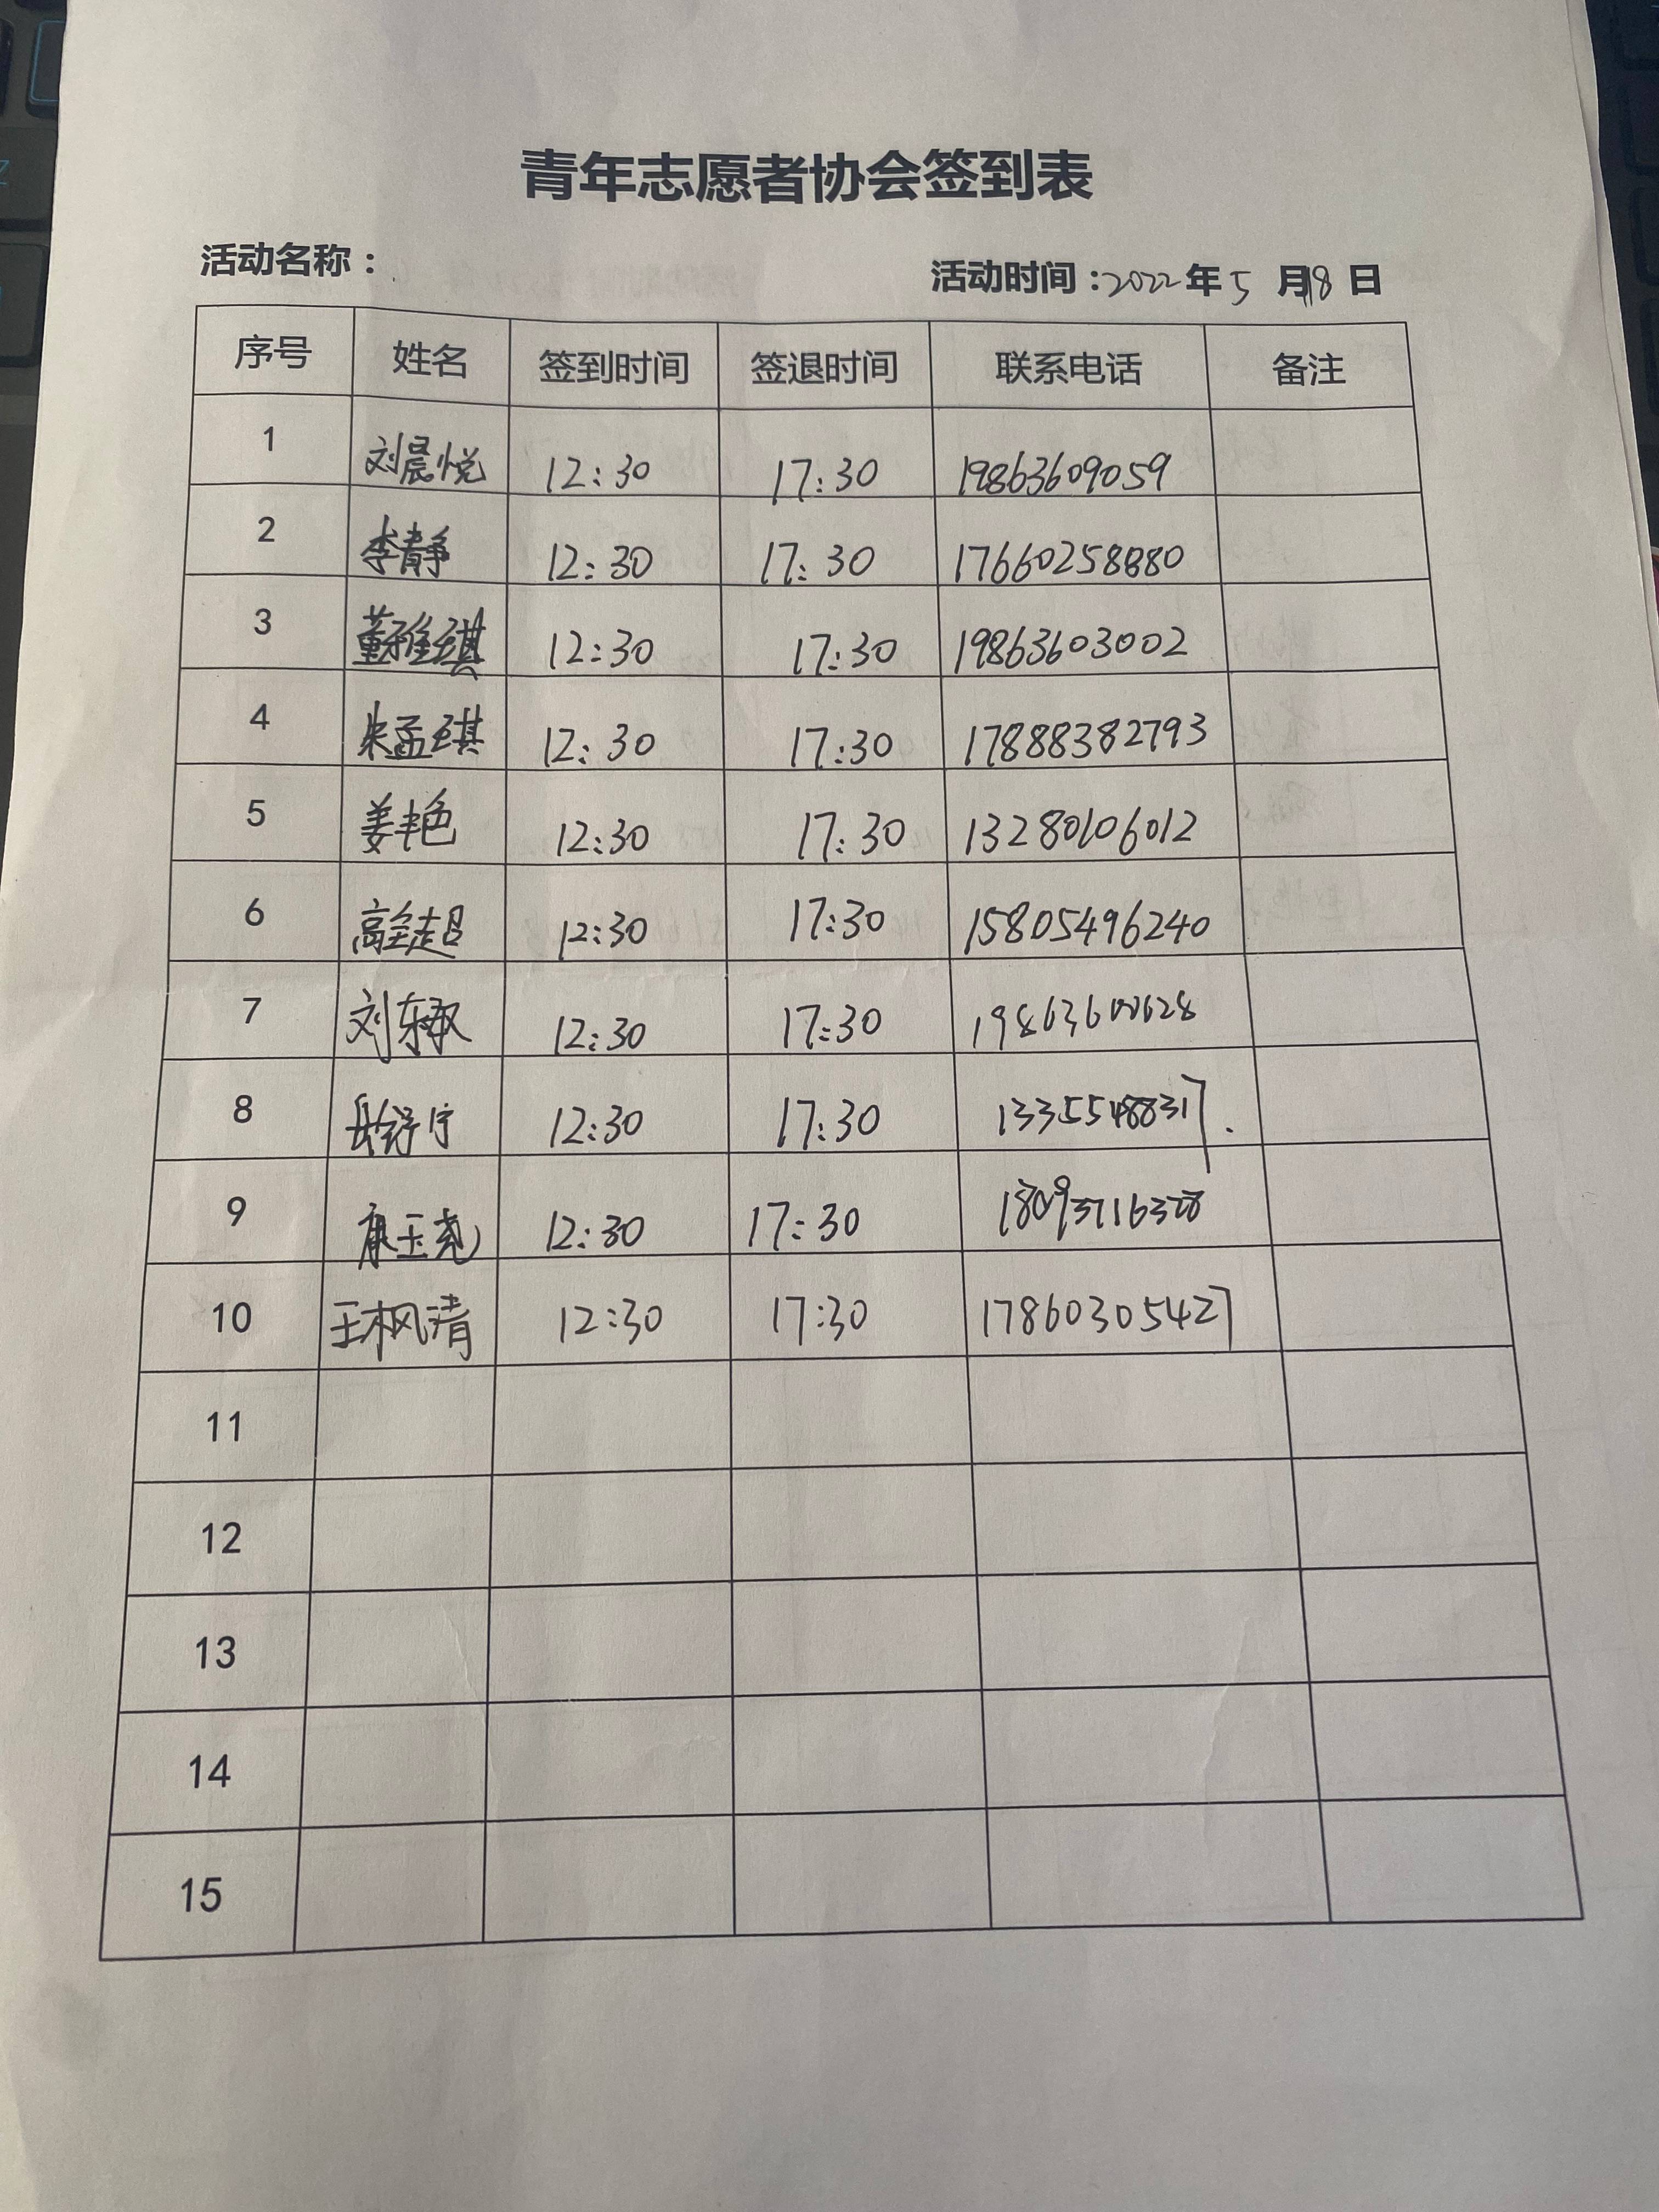 青年志愿者协会签到表
活动名称：
活动时间：2022年5月18日
序号 姓名 签到时间 签退时间 联系电话 备注
1 刘晨悦 12:30 17:30 19863609059
2 李静 12:30 17:30 17660258880
3 董雅琪 12:30 17:30 19863603002
4 朱孟琪 12:30 17:30 17888382793
5 姜丰色 12:30 17:30 13280106012
6 高全超 12:30 17:30 15805496240
7 刘东 12:30 17:30
8 12:30 17:30 13355488317
9 康玉尧 12:30 17:30
10 王枫清 12:30 17:30 17860305427
11
12
13
14
15